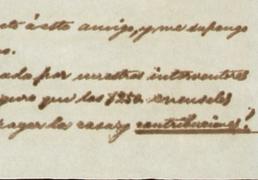 á este amigo, y me supongo
o.
ada por nuestros interventores
que los $250 mensuales
la casa y contribuciones!